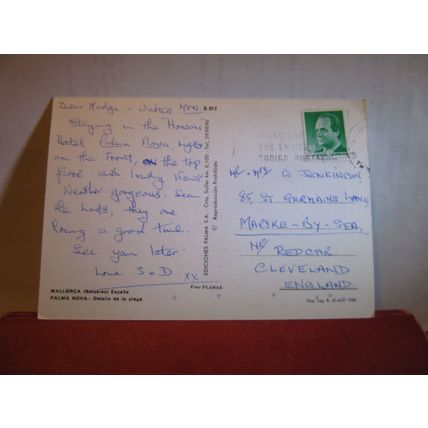 Dear Madge - Walter
Staying in the
Hotel Palma Nova, right
on the Front, on the top
floor with lovely views
Weather gorgeous. Seen
the lads, they are
having a good time.
See you later
Love S x D.
XX
MALLORCA (Baleares) España
PALMA NOVA.- Detalle de la playa
Foto PLANAS
S.317
EDICIONES PALMA S.A. Tel.
© Reproducción Prohibida
CONSIGNE
SUS ENVIOS
CODIGO POSTAL
MR + MRS W JENKINSON
85, ST GERMAINS LANE
MARSKE-BY-SEA,
NR REDCAR
CLEVELAND
ENGLAND